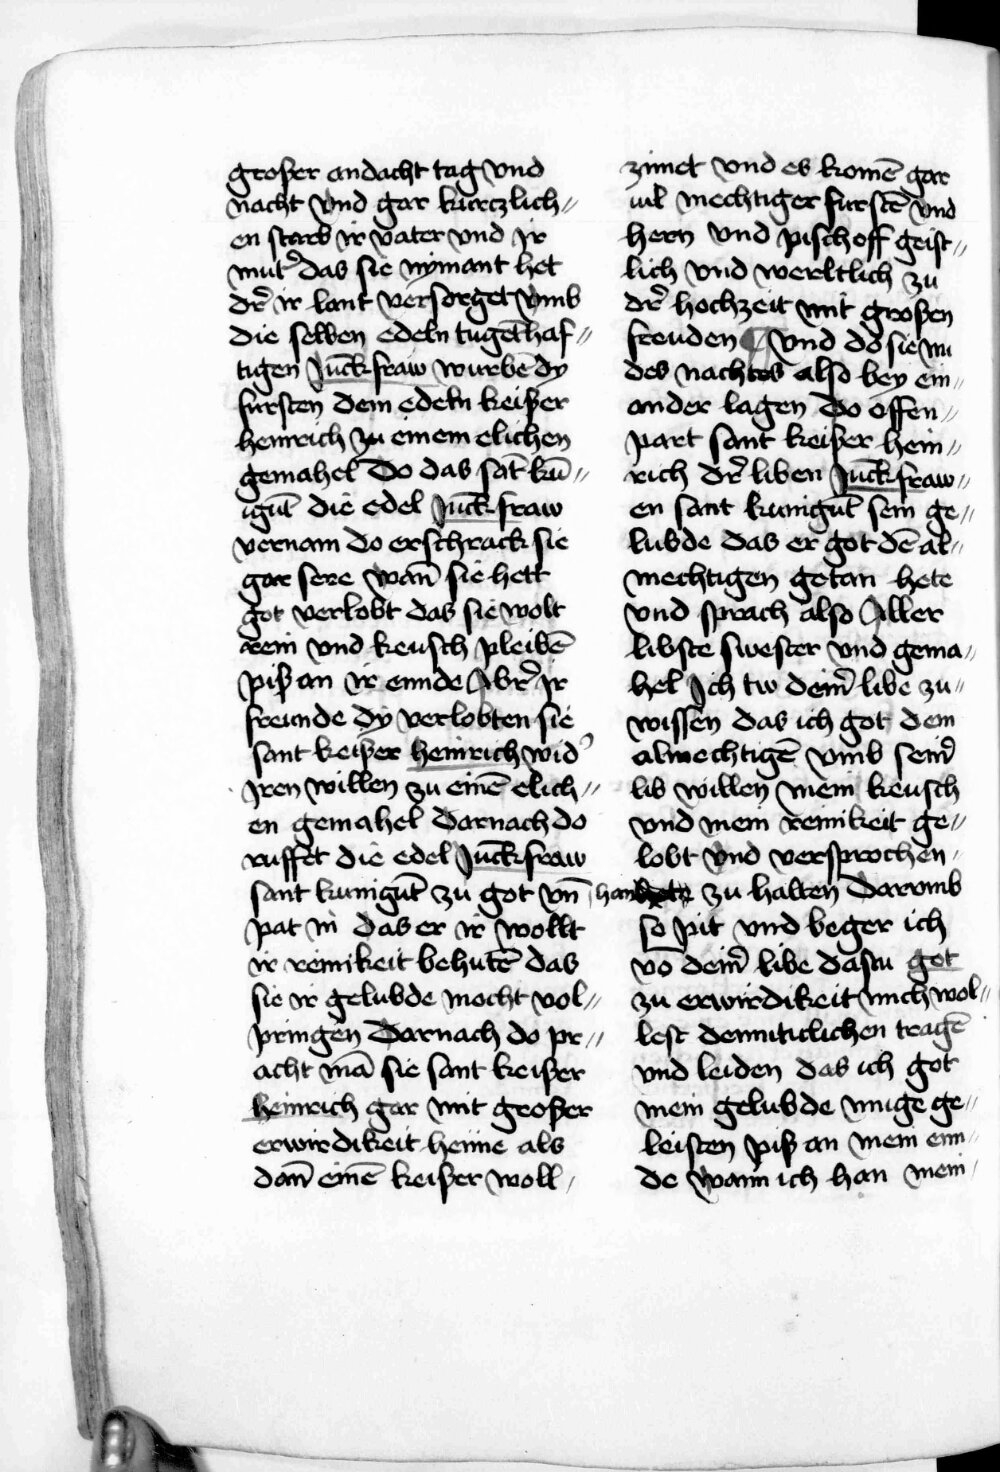 großer andacht tag vnd
nacht vnd gar kurczlich〃
en starb ir vater vnd ir
mutʾ das sie nymant het
dr̄ ir lant versorget vmb
die selben edeln tugēthaf〃
tigen Jūckfraw wurbē dy
fursten dem edeln keißer
heinrich zu einem elichen
gemahel Do das sāt kū〃
igūt die edel Jūckfraw
vernam do erschrack sie
gar sere wan̄ sie hett
got verlobt das sie wolt
rein vnd keusch pleibē
piß an ir ennde Abr̄ ir
freunde dy verlobten sie
sant keißer heinrich widʾ
Jren willen zu einē elich〃
en gemahel Darnach do
ruffet die edel Jūckfraw
sant kunigūt zu got vn̄
pat in das er ir wollt
ir reinikeit behutē das
sie ir gelubde mocht vol〃
pringen Darnach do pr〃
acht mā sie sant keißer
heinrich gar mit großer
erwirdikeit heime als
dan̄ einē keißer woll〃
zimet vnd es komē gar
uil mechtiger furstē vnd
hern vnd pischoff geist〃
lich vnd werltlich zu
dr̄ hochzeit mit großen
freuden ¶ vnd do sie nu
des nachtes also bey ein〃
ander lagen Do offen〃
part sant keißer hein〃
rich dr̄ liben Jūckfraw〃
en sant kunigūt sein ge〃
lubde das er got dē al〃
mechtigen getan hete
vnd sprach also Aller
libste swester vnd gema〃
hel Ich tw dein̄ libe zu〃
wissen das ich got dem
almechtigē vmb sein̄
lib willen mein keusch
vnd mein reinikeit ge〃
lobt vnd versprochen〃
han zu halten Darvmb
so pit vnd beger ich
vō dein̄ libe dastu got
zu erwirdikeit mich wol〃
lest demuticlichen tragē
vnd leiden das ich got
mein gelubde muge ge〃
leisten piß an mein enn〃
de wann ich han mein〃